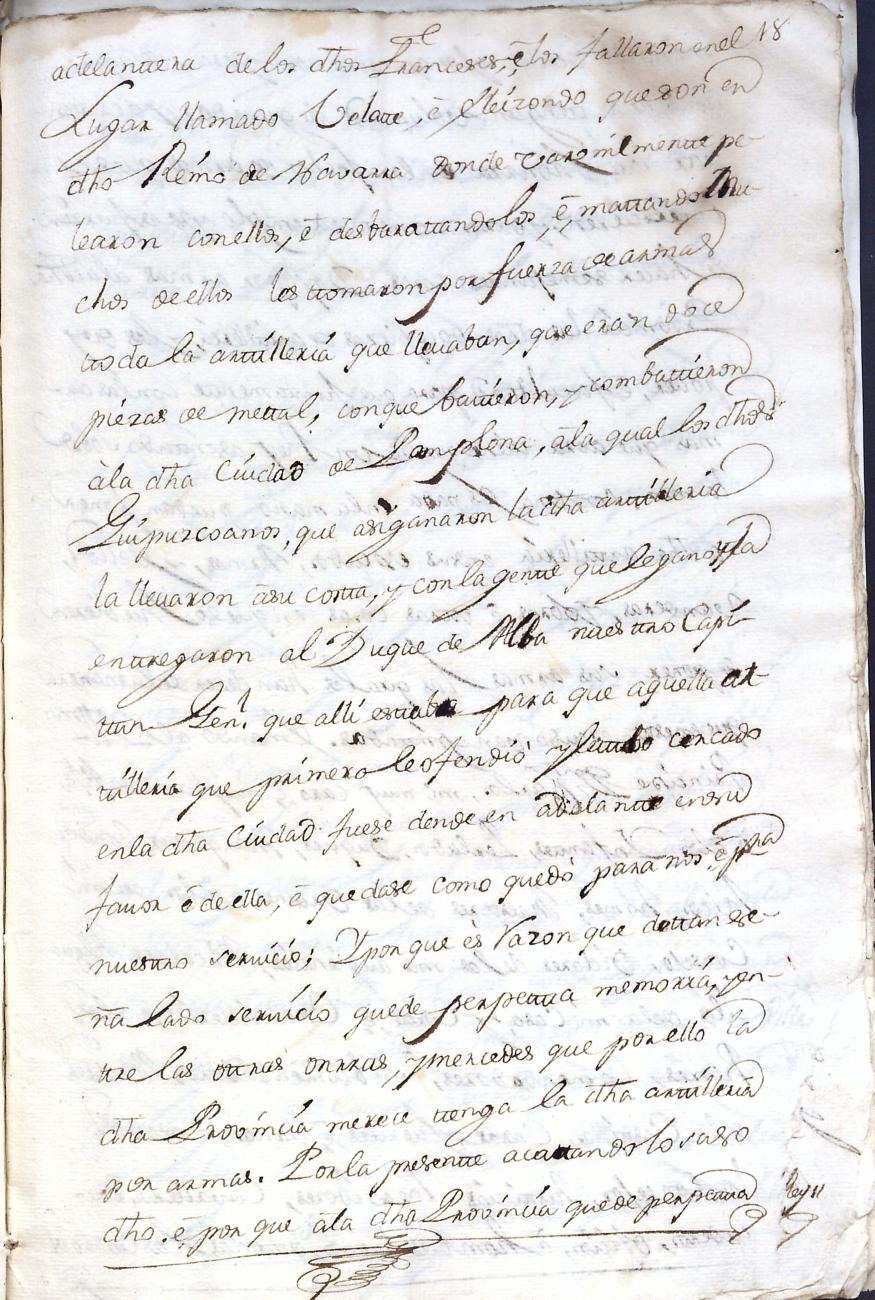 18
adelantera de los dhos Franceses, ē los fallaron en el
Lugar llamado Velate, ē Eleizondo que son en
dho Reino de Navarra donde varonilmente pe-
learon con ellos, e desbarattandolos, ē, mattando Mu-
chos de ellos les ttomaron por fuerza de armas
ttoda la arttilleria que llevaban, que eran doce
piezas de mettal, con que battieron, y combattieron
àla dha Ciudad de Pamplona, àla qual los dhos
Guipuzcoanos, que asi ganaron la dha arttilleria
la llevaron àsu costa, y con la gentte
enttregaron al Duque de Alba nuesttro Capi-
ttan Genl. que alli estaba para que aquella ar-
ttilleria que primero le ofendió y le tubo cercado
en la dha Ciudad fuese dende en adelantte en su
favor ē de ella, ē quedase como quedó para nos, ē pra
nuesttro servicio; Y por que és razon que de ttan se-
ñalado servicio quede perpettua memoria, y en-
ttre las ottras onrras, y mercedes que por ello la
dha Provincia merece ttenga la dha arttilleria
por armas. Por la presentte acattando lo suso
dho. ē, por que àla dha Provincia quede perpettua